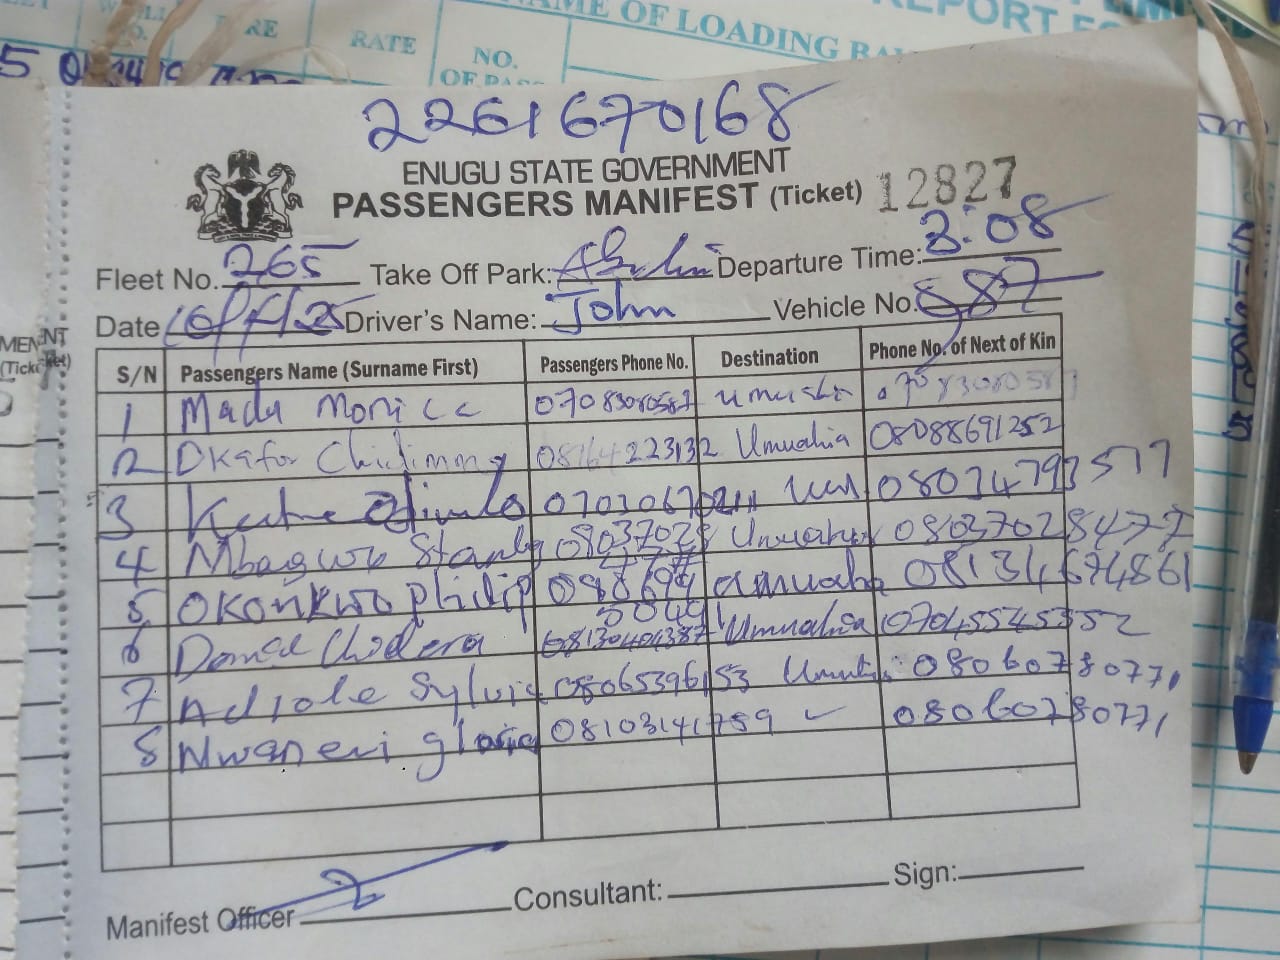 RE
RATE
NO.
OF PASS
NAME OF LOADING BA
REPORT F
2261670168
ENUGU STATE GOVERNMENT
PASSENGERS MANIFEST (Ticket) 12827
Fleet No. 265 Take Off Park: Departure Time: 2:08
Date Driver's Name: John Vehicle No. 587
MENT
(Ticket)
S/N Passengers Name (Surname First) Passengers Phone No. Destination Phone No. of Next of Kin
1 Madu Monicc 07083080587 umuahia 07083080587
2 Okafor Chidimma 08164223132 Umuahia 08088691252
3 070306702 08034793577
4 Mbagwu Stanly 08037028477 Umuahia 08037028477
5 OKONKWO philip amuahia 08134674861
6 Chidera 08130404387 Umuahia 07045545352
7 Adiole Sylvia 08065396153 08060780771
8 Nwaneri gloria 08103141759 08060780771
Manifest Officer Consultant: Sign: